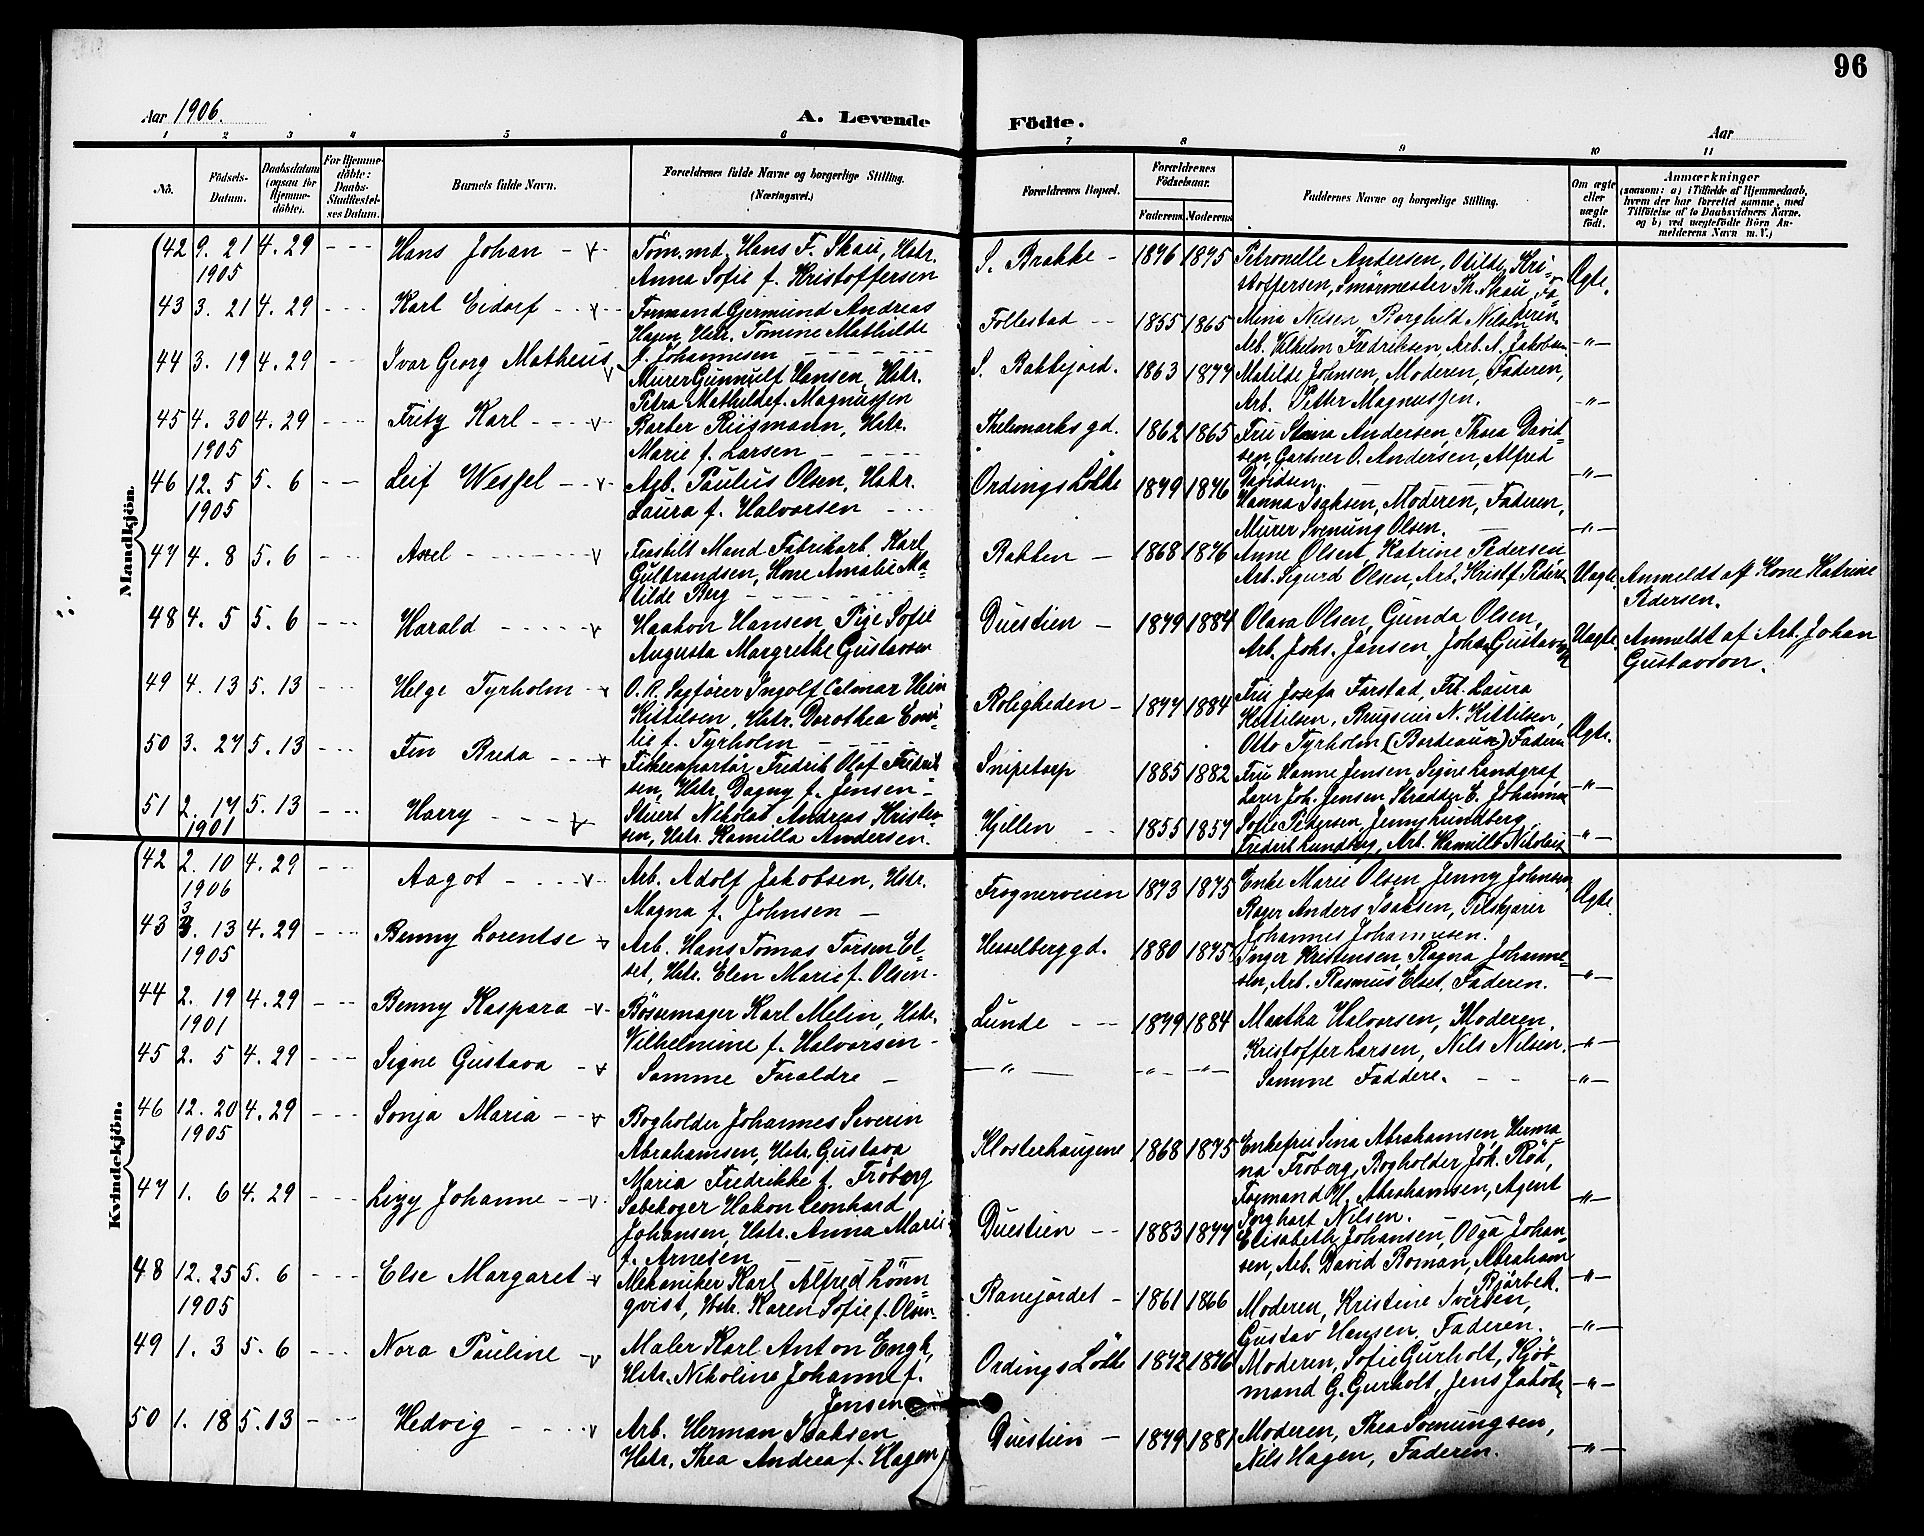 96
Aar 1906.
A. Levende Födte.
Aar
1 2 3 4 5 6 7 8 9 10 11
No.
Födsels-Datum.
Daabsdatum (ogsaa for Hjemme-döbte).
For Hjemme-döbte: Daabs-Stadfæstel-ses Datum.
Barnets fulde Navn.
Forældrenes fulde Navne og borgerlige Stilling. (Næringsvei.)
Forældrenes Bopæl.
Forældrenes Födselsaar.
Faderens Moderens
Faddernes Navne og borgerlige Stilling.
Om ægte eller uægte födt.
Anmærkninger
(saasom: a) i Tilfælde af Hjemmedaab, hvem der har forrettet samme, med Tilföielse af to Daabsvidners Navne, og b) ved uægtefödte Börn An-melderens Navn m. V.)
Mandkjön.
42 9. 21 1905 4. 29 Hans Johan
Töm.md. Hans F. Skau, Hstr.
Anna Sofie f. Kristoffersen
S. Brække 1876 1875
Petronelle Andersen, Otilde Kri-
stoffersen, Smörmester Th. Skau, Fa-
deren
Ægte.
43 3. 21 4. 29 Karl Eidorf
Formand Gjermund Andreas
Hagen, Hstr. Tomine Mathilde
f. Johannesen
Follestad 1855 1865
Mina Nilsen Borghild Nilsen
Arb. Vilhelm Fredriksen, Arb. A. Jakobsen
-"-
44 3. 19 4. 29 Ivar Georg Matheus
Murer Gunnulf Hansen, Hstr.
Petra Mathilde f. Magnussen
S. Bakkejord. 1863 1877
Matilde Johnsen, Moderen, Faderen,
Arb. Petter Magnussen.
-"-
45 4. 30 1905 4. 29 Fritz Karl
Barber Riismann, Hstr.
Marie f. Larsen
Thelemarksgd. 1862 1865
Fru Stina Andersen, Thora David-
sen, Gartner O. Andersen, Alfred
Davidsen.
-"-
46 12. 5 1905 5. 6 Leif Wessel
Arb. Paulus Olsen, Hstr.
Laura f. Halvorsen
Ordings Lökke 1879 1876
Hanna Isaksen, Moderen, Faderen,
Murer Svenung Olsen.
-"-
47 4. 8 5. 6 Axel
Fraskilt Mand Fabrikarb. Karl
Gulbrandsen, Kone Amalie Ma-
tilde Berg
Bakken 1868 1876
Anne Olsen, Katrine Pedersen
Arb. Sigurd Olsen, Arb. Kristf. Peders.
Uægte.
Anmeldt af Kone Katrine
Pedersen.
48 4. 5 5. 6 Harald
Haakon Hansen Pige Sofie
Augusta Margrethe Gustavsen
Duestien 1879 1884
Olava Olsen, Gunda Olsen,
Arb. Johs. Jansen, Johan Gustavson
Uægte.
Anmeldt af Arb. Johan
Gustavson.
49 4. 13 5. 13 Helge Tyrholm
O. R. Sagförer Ingolf Celmar Hein
Kittilsen, Hstr. Dorothea Emi-
lie f. Tyrholm
Roligheden 1877 1884
Fru Josefa Farstad, Frk. Laura
Kittilsen, Brugseier N. Kittilsen,
Otto Tyrholm (Bordeaux) Faderen
Ægte.
50 3. 27 5. 13 Fin Breda
Fredrik Olaf Fredrik-
sen, Hstr. Dagny f. Jensen
Snipetorp 1885 1882
Fru Hanne Jensen Signe Landgraf
Lærer Joh. Jensen Skrædder E. Johannes
-"-
51 2. 17 1901 5. 13 Harry
Stuert Nikolai Andreas Kristen-
sen, Hstr. Kamilla Andersen.
Hjellen 1855 1857
Sofie Pedersen, Jenny Lundberg,
Fredrik Lundberg, Arb.
-"-
Kvindekjön.
42 2. 10 1906 4. 29 Aagot
Arb. Adolf Jakobsen, Hstr.
Magna f. Johnsen
Frognerveien 1873 1875
Enke Marie Olsen, Jenny Johnsen
Bager Anders Isaksen, Tilskjærer
Johannes Johannesen.
Ægte.
43 3. 13 1905 4. 29 Benny Lorentse
Arb. Hans Tomas Torsen El-
set, Hstr. Elen Marie f. Olsen
Hesselberggd. 1880 1875
Inger Kristensen, Ragna Johanne-
sen, Arb. Rasmus Elset, Faderen.
-"-
44 2. 19 1901 4. 29 Benny Kaspara
Bössemager Karl Melin, Hstr.
Vilhelmine f. Halvorsen
Lunde 1879 1884
Martha Halvorsen, Moderen,
Kristoffer Larsen, Nils Nilsen.
-"-
45 2. 5 4. 29 Signe Gustava
Samme Forældre
-"- -"- -"-
Samme Faddere.
-"-
46 12. 20 1905 4. 29 Sonja Maria
Bogholder Johannes Severin
Abrahamsen, Hstr. Gustava
Maria Fredrikke f. Fröberg
Klosterhaugene 1868 1875
Enkefru Sina Abrahamsen, Herma
na Fröberg, Bogholder Joh. Röd,
Formand H. Abrahamsen, Agent
Nilsen.
-"-
47 1. 6 4. 29 Lizzy Johanne
Sæbekoger Hakon Leonhard
Johansen, Hstr. Anna Marie
f. Arnesen
Duestien 1883 1877
Elisabeth Johansen, Olga Johan-
sen, Arb. David Roman, Abraham
Bjørbek.
-"-
48 12. 25 1905 5. 6 Else Margaret
Mekaniker Karl Alfred Lönn
qvist, Hstr. Karen Sofie f. Olsen
Ranejordet 1861 1866
Moderen, Kristine Iversen,
Gustav Hansen, Faderen.
-"-
49 1. 3 5. 6 Nora Pauline
Maler Karl Anton Engh,
Hstr. Nikoline Johanne f.
Jensen
Ordings Lökke 1872 1876
Moderen, Sofie Gurholt, Kjöb-
mand G. Gurholt, Jens Jakobs.
-"-
50 1. 18 5. 13 Hedvig
Arb. Herman Isaksen
Hstr. Thea Andrea f. Hagen
Duestien 1879 1881
Moderen, Thea Svenungsen,
Nils Hagen, Faderen.
-"-